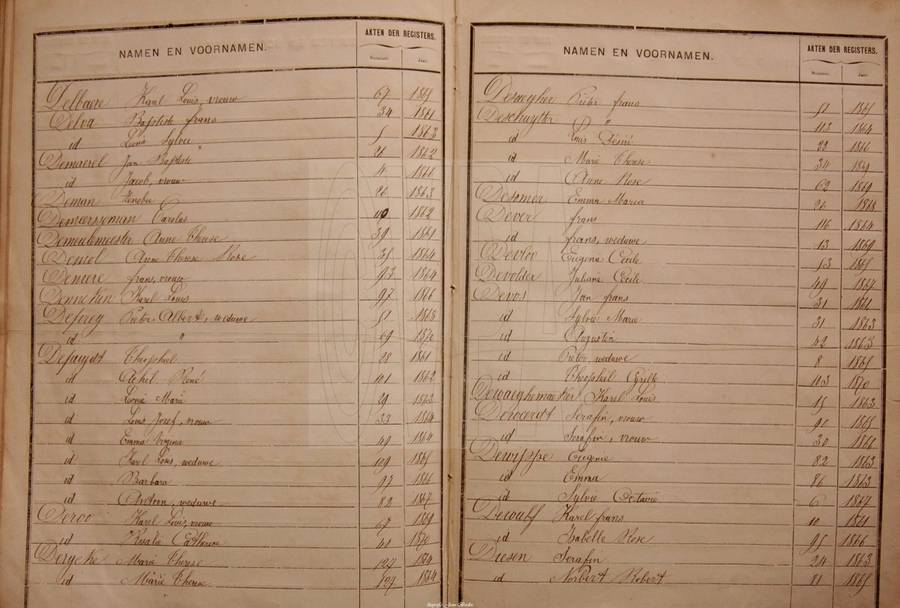 NAMEN EN VOORNAMEN. AKTEN DER REGISTERS.
Delbaere Karel Louis, vrouw 67 1861
Delva Baptiste frans 34 1861
id Louis Sylvie 5 1863
Demaerel Jan Baptiste 21 1862
id Jacob, vrouw 4 1866
Deman 26 1863
Demeersseman Carolus 40 1862
Demeulemeester Anne Therese 39 1861
Demol Anne Therese Rose 35 1864
Demere frans, vrouw 93 1864
Karel Louis 97 1866
Pieter Albert, weduwe 51 1865
id " 69 1870
Theophiel 28 1861
id Achiel René 101 1862
id Marie 29 1863
id Louis Josef, vrouw 33 1864
id Emma 49 1864
id Karel Louis, weduwe 109 1865
id Barbara 97 1866
id weduwe 82 1867
Deroo Karel Louis, vrouw 67 1869
id Rosalie Catherine 40 1870
Derycke Marie Therese 127 1864
id Marie Therese 129 1864
NAMEN EN VOORNAMEN. AKTEN DER REGISTERS.
Pieter frans 51 1865
Deschuytter " 113 1864
id Louis Désiré 22 1866
id Marie Therese 34 1869
id Anne Rose 62 1869
Desomer Emma Maria 21 1868
Dever frans 116 1864
id frans, weduwe 13 1869
Eugene Cecile 53 1865
Devolder Juliana Cecile 49 1867
Devos Jan frans 31 1861
id Sylvie Marie 31 1863
id Augustin 42 1863
id Pieter, weduwe 8 1865
id Theophiel Cyrille 103 1870
Dewaeghemaeker Karel Louis 15 1863
Serafin, vrouw 90 1865
id Serafin, vrouw 30 1866
Dewispe Eugenie 82 1863
id Emma 86 1863
id Sylvie Octavie 6 1867
Dewulf Karel frans 10 1861
id Isabelle Rose 95 1866
Diesen Serafin 24 1863
id Norbert Robert 81 1865